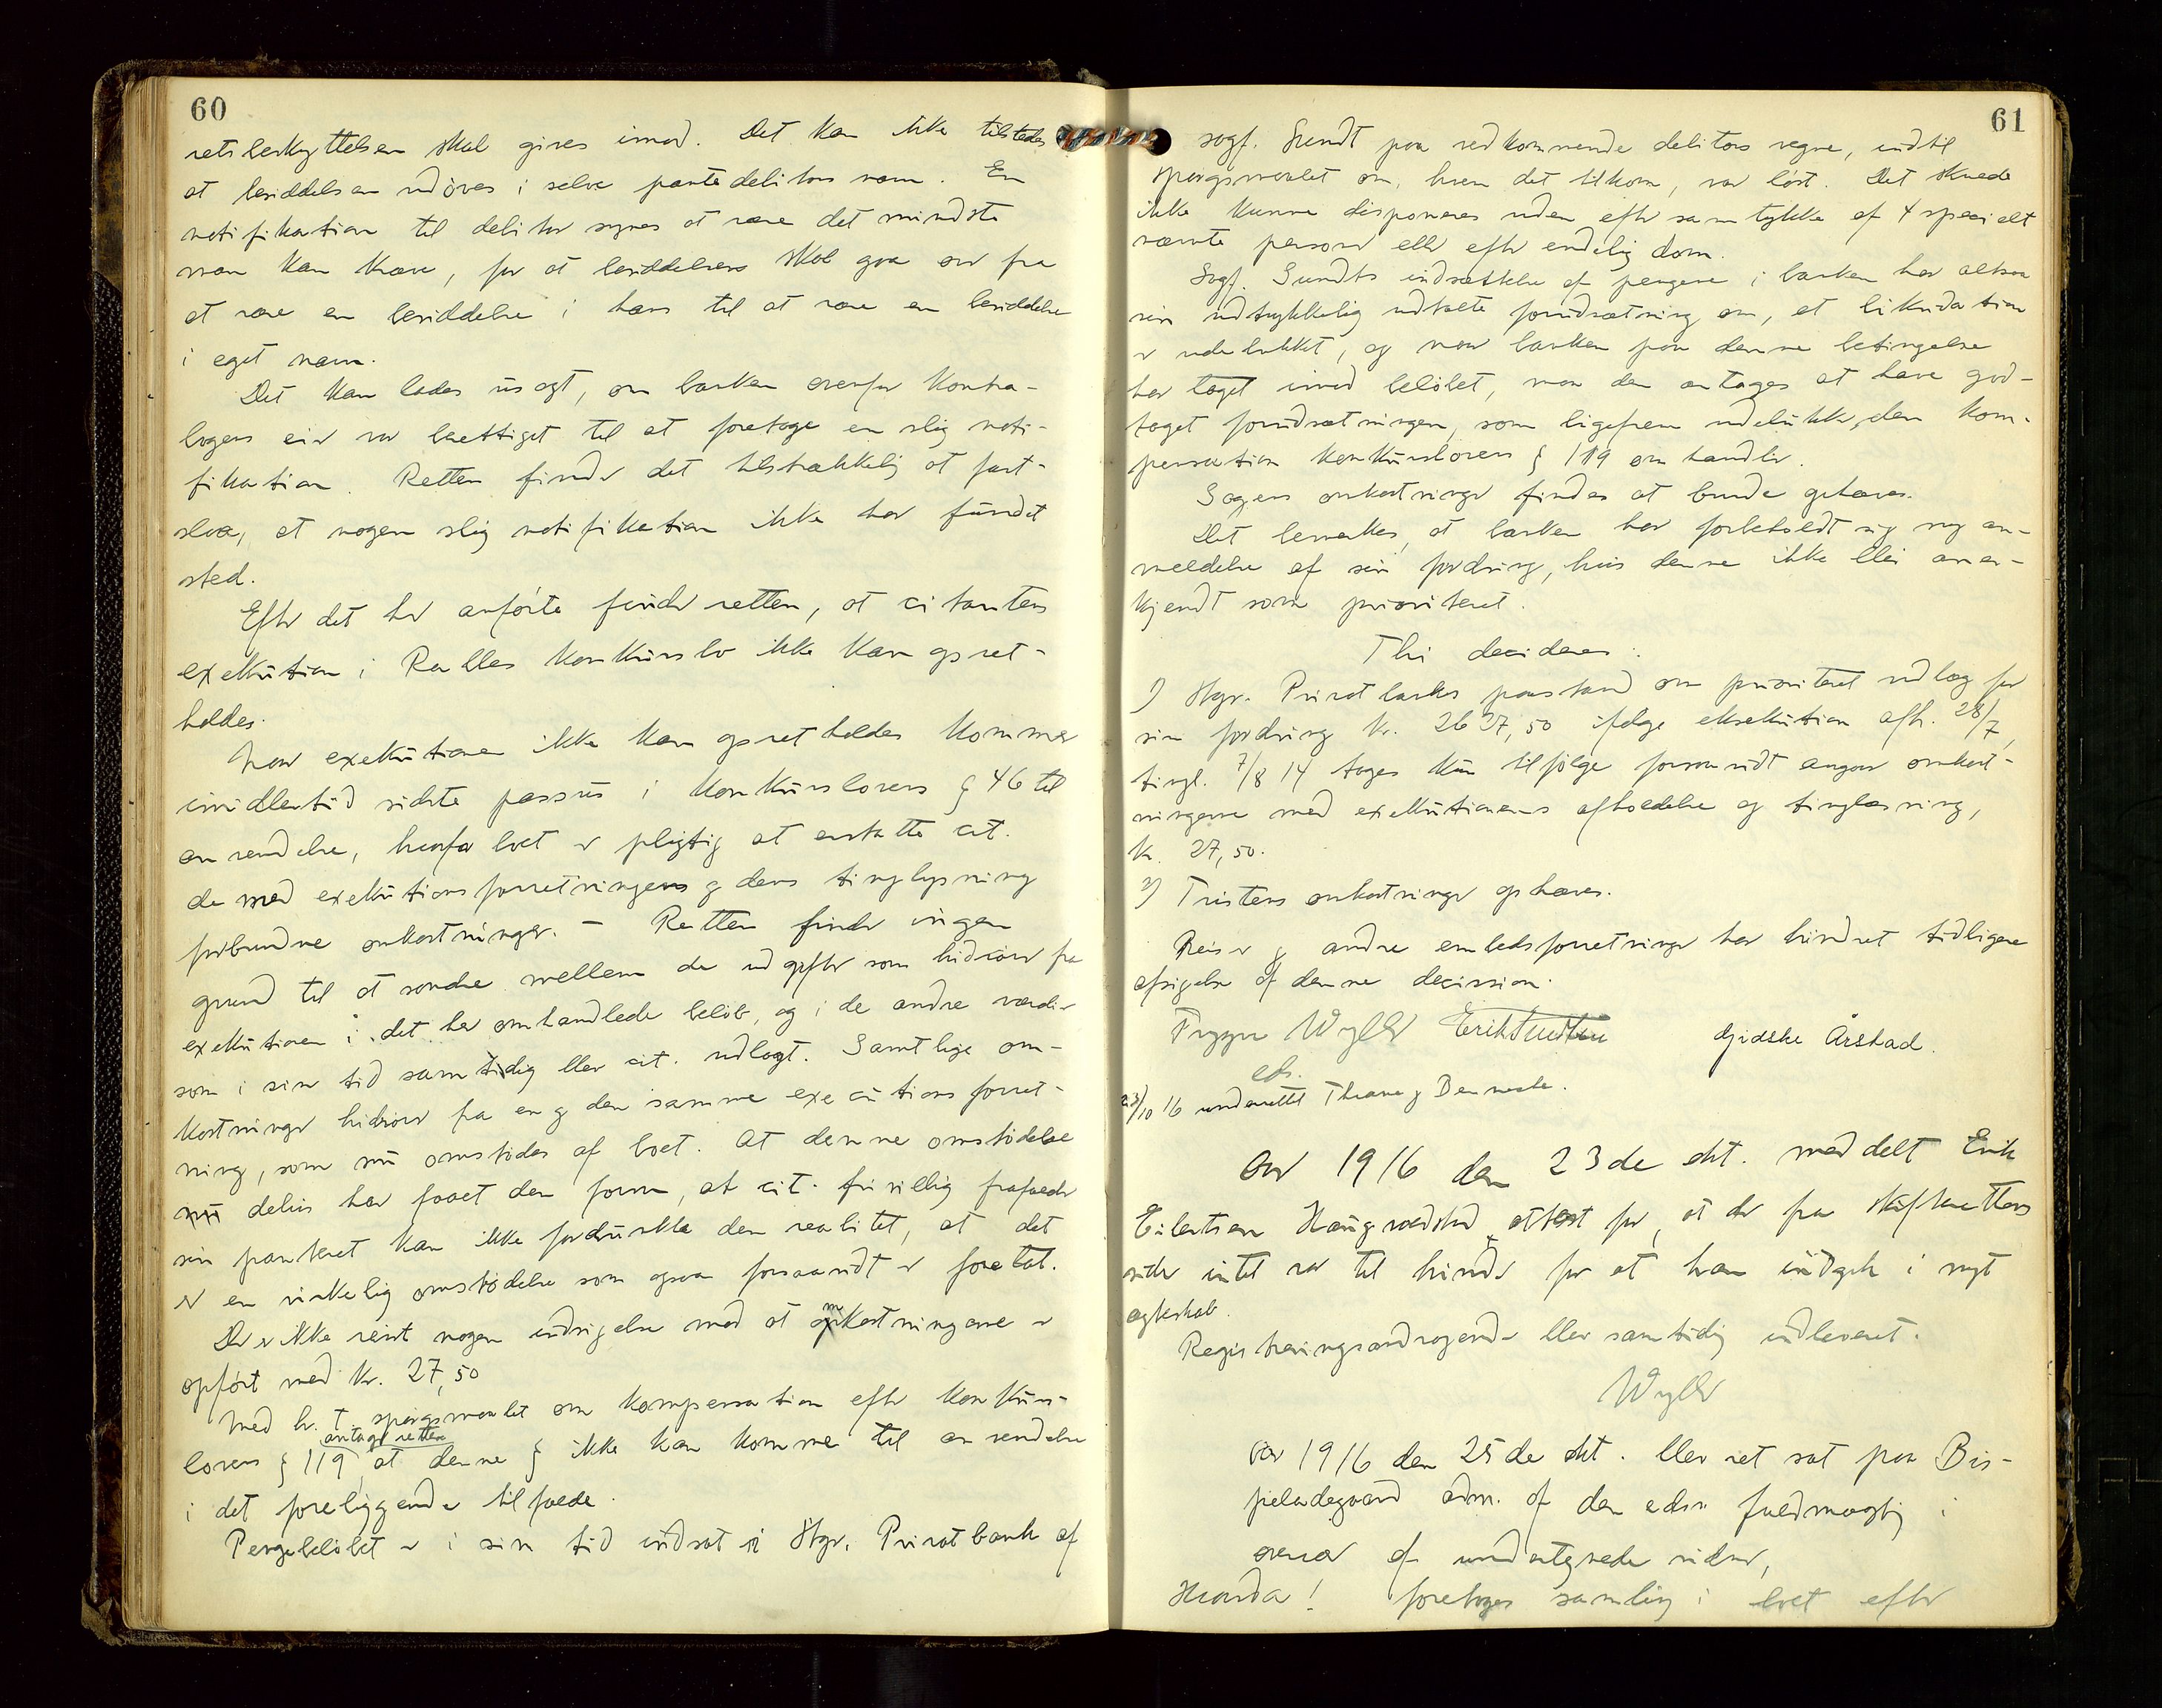 60
retsbeskyttelsen skal gives imod. Det kan ikke tilstedes
at besiddelsen udöves i selve pantedebitors navn. En
notifikation til debitor synes at være det mindste
man kan kræve, for at besiddelsens skal gaa over fra
at være en besiddelse i hans til at være en besiddelse
i eget navn.
Det kan lades usagt, om banken ovenfor kontra-
bogens eier var berettiget til at foretage en slig noti-
fikation. Retten finder det tilstrækkelig at fast-
slaa, at nogen slig notifikation ikke har fundet
sted.
Efter det her anförte finder retten, at citantens
exekution i Ralles konkursbo ikke kan opret-
holdes.
Naar exekutionen ikke kan opretholdes kommer
imidlertid sidste passus i konkurslovens § 46 til
anvendelse, hvorfor boet er pligtig at erstatte cit.
de med exekutionsforretningens og dens tinglysning
forbundne omkostninger. – Retten finder ingen
grund til at sondre mellem de udgifter som hidrörer fra
exekutionen i det her omhandlede belöb, og i de andre værdier
som i sin tid samtidig blev cit. udlagt. Samtlige om-
kostninger hidrörer fra en og den samme executionsforret-
ning, som nu omstödes af boet. At denne omstödelse
delvis har faaet den form, at cit. frivillig frafalder
sin panteret kan ikke fordunkle den realitet, at det
er en virkelig omstödelse som ogsaa forsaavidt er foretat.
Der er ikke reist nogen indsigelse mod at omkostningerne er
opfört med kr. 27,50
Med h. t. spörgsmaalet om kompensation efter konkurs-
antager retten
lovens § 119, at denne § ikke kan komme til anvendelse
i det foreliggende tilfælde.
Pengebelöbet er i sin tid indsat i Hgr. Privatbank af
61
sagf. Sundt paa vedkommende debitors vegne, indtil
spörgsmaalet om, hvem det tilkom, var löst. Det skulde
ikke kunne disponeres uden efter samtykke af 4 specielt
nævnte personer eller efter endelig dom.
Sagf. Sundts indsættelse af pengene i banken har altsaa
sin udtrykkelig udtalte forudsætning om, at likvidation
er udelukket, og naar banken paa denne betingelse
har taget imod belöbet, maa den antages at have god-
taget forudsætningen, som ligefrem udelukker, den kom-
pensation konkurslovens § 119 omhandler.
Sagens omkostninger findes at burde ophæves.
Det bemerkes, at banken har forbeholdt sig ny an-
meldelse af sin fordring, hvis denne ikke blir aner-
kjendt som prioriteret.
Thi decideres:
1) Hgr. Privatbanks paastand om prioriteret udlæg for
sin fordring kr. 2627,50 ifölge eksekution afh. 28/7,
tingl. 7/8 14 tages kun tilfölge forsaavidt angaar omkost-
ningerne med exekutionens afholdelse og tinglæsning,
kr. 27,50.
2) Tvistens omkostninger ophæves.
Reiser og andre embedsforretninger har hindret tidligere
afsigelse af denne decission.
Trygve Wyller
Gjidske Årstad.
23/10 16 underrettet Thrane &
Aar 1916 den 23de okt. meddelt Erik
Eilertsen attest for, at der fra skifterettens
side intet var til hinder for at han indgik i nyt
egteskab.
Registreringsandragende blev samtidig indleveret.
Wyller
Aar 1916 den 25de okt. blev ret sat paa Bis-
peladegaard adm. af den edsv. fuldmægtig i
overvær af undertegnede vidner,
Hvorda! foretoges samling i boet efter